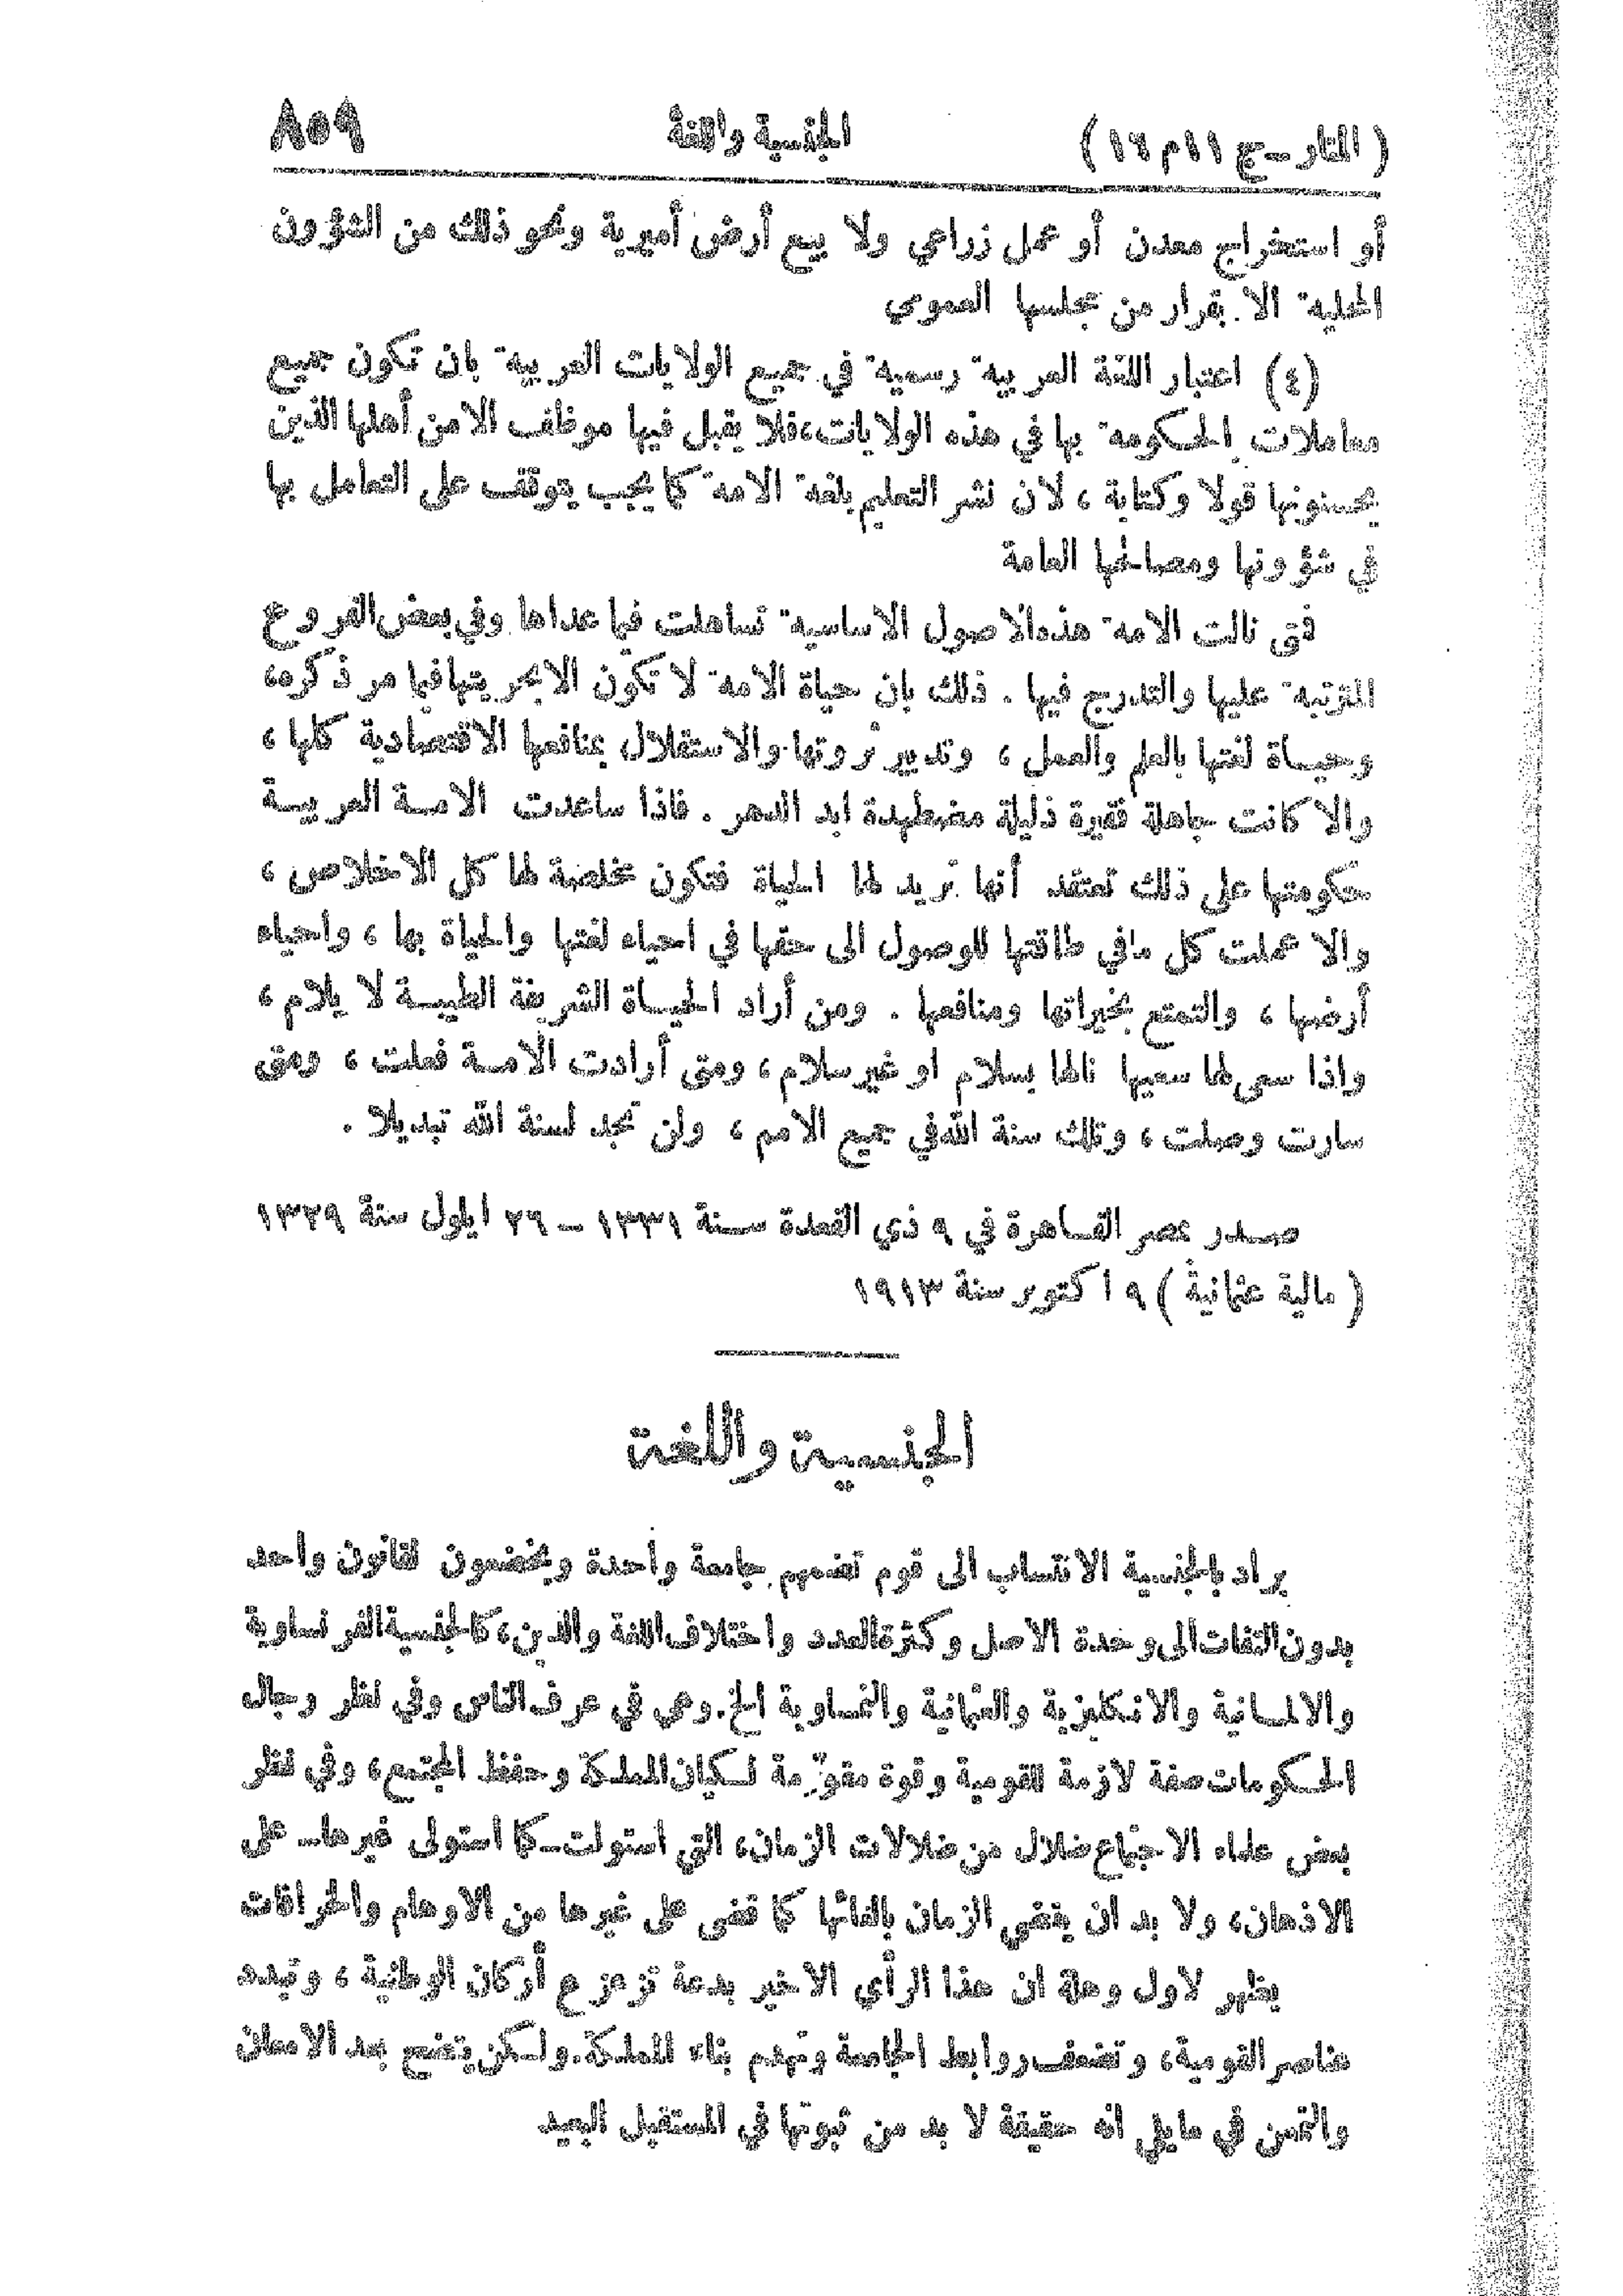 ( المنار ــ ج ١١ م ١٦ ) الجنسية واللغة ٨٥٩
أو استخراج معدن أو عمل زراعي ولا بيع أرض أميرية ونحو ذلك من الشؤون
المحلية الا بقرار من مجلسها العمومي
(٤) اعتبار اللغة العربية رسمية في جميع الولايات العربية بان تكون جميع
معاملات الحكومة بها في هذه الولايات، فلا يقبل فيها موظف الا من أهلها الذين
يحسنونها قولا وكتابة ، لان نشر التعليم بلغة الامة كما يجب يتوقف على التعامل بها
في شؤونها ومصالحها العامة
فتى نالت الامة هذه الاصول الاساسية تساهلت فيما عداها وفي بعض الفروع
المترتبة عليها والتدرج فيها . ذلك بان حياة الامة لا تكون الا بحريتها فيما مر ذكره،
وحياة لغتها بالعلم والعمل ، وتدبير ثروتها والاستقلال بمنافعها الاقتصادية كلها ،
والا كانت جاهلة فقيرة ذليلة مضطهدة ابد الدهر . فاذا ساعدت الامة العربية
حكومتها على ذلك تعتقد أنها تريد لها الحياة فتكون مخلصة لها كل الاخلاص ،
والا عملت كل ما في طاقتها للوصول الى حقها في احياء لغتها والحياة بها ، واحياء
أرضها ، والتمتع بخيراتها ومنافعها . ومن أراد الحياة الشريفة الطيبة لا يلام ،
واذا سعى لها سعيها نالها بسلام او غير سلام ، ومتى أرادت الامة فعلت ، ومتى
سارت وصلت ، وتلك سنة الله في جميع الامم ، ولن تجد لسنة الله تبديلا .
صدر بمصر القاهرة في ٩ ذي القعدة سنة ١٣٣١ ــ ٢٦ ايلول سنة ١٣٢٩
( مالية عثمانية ) ٩ اكتوبر سنة ١٩١٣
الجنسية واللغة
يراد بالجنسية الانتساب الى قوم تضمهم جامعة واحدة ويخضعون لقانون واحد
بدون التفات الى وحدة الاصل وكثرة العدد واختلاف اللغة والدين، كالجنسية الفرنساوية
والالمانية والانكليزية والعثمانية والنمساوية الخ. وهي في عرف الناس وفي نظر رجال
الحكومات صفة لازمة للقومية وقوة مقوّمة لكيان المملكة وحفظ المجتمع، وفي نظر
بعض علماء الاجتماع ضلال من ضلالات الزمان، التي استولت ــ كما استولى غيرها ــ على
الاذهان، ولا بد ان يقضي الزمان بالغائها كما قضى على غيرها من الاوهام والخرافات
يظهر لاول وهلة ان هذا الرأي الاخير بدعة تزعزع أركان الوطنية ، وتبدد
عناصر القومية، وتضعف روابط الجامعة وتهدم بناء المملكة. ولكن يتضح بعد الامعان
والتمعن في مايلي انه حقيقة لا بد من ثبوتها في المستقبل البعيد